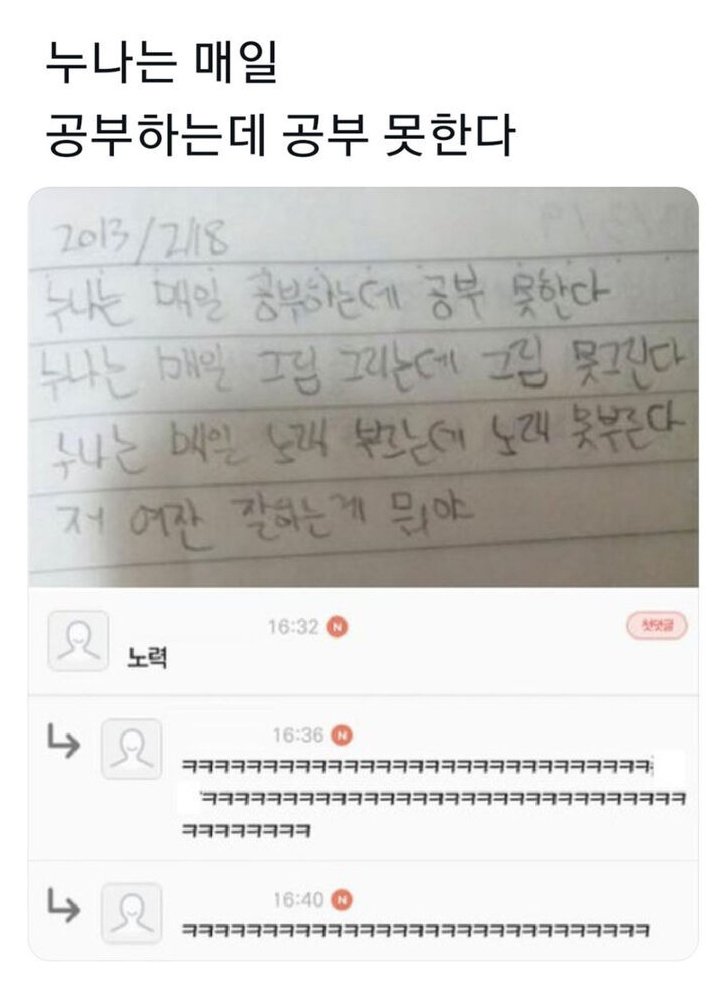 누나는 매일
공부하는데 공부 못한다
2013/2/18
누나는 매일 공부하는데 공부 못한다
누나는 매일 그림 그리는데 그림 못그린다
누나는 매일 노래 부르는데 노래 못부른다
저 여잔 잘하는게 뭐야
16:32 N 첫댓글
노력
16:36 N
ㅋㅋㅋㅋㅋㅋㅋㅋㅋㅋㅋㅋㅋㅋㅋㅋㅋㅋㅋㅋㅋㅋㅋㅋㅋㅋㅋㅋㅋ
ㅋㅋㅋㅋㅋㅋㅋㅋㅋㅋㅋㅋㅋㅋㅋㅋㅋㅋㅋㅋㅋㅋㅋㅋㅋㅋㅋㅋㅋㅋ
ㅋㅋㅋㅋㅋㅋㅋㅋ
16:40 N
ㅋㅋㅋㅋㅋㅋㅋㅋㅋㅋㅋㅋㅋㅋㅋㅋㅋㅋㅋㅋㅋㅋㅋㅋㅋㅋㅋㅋㅋ